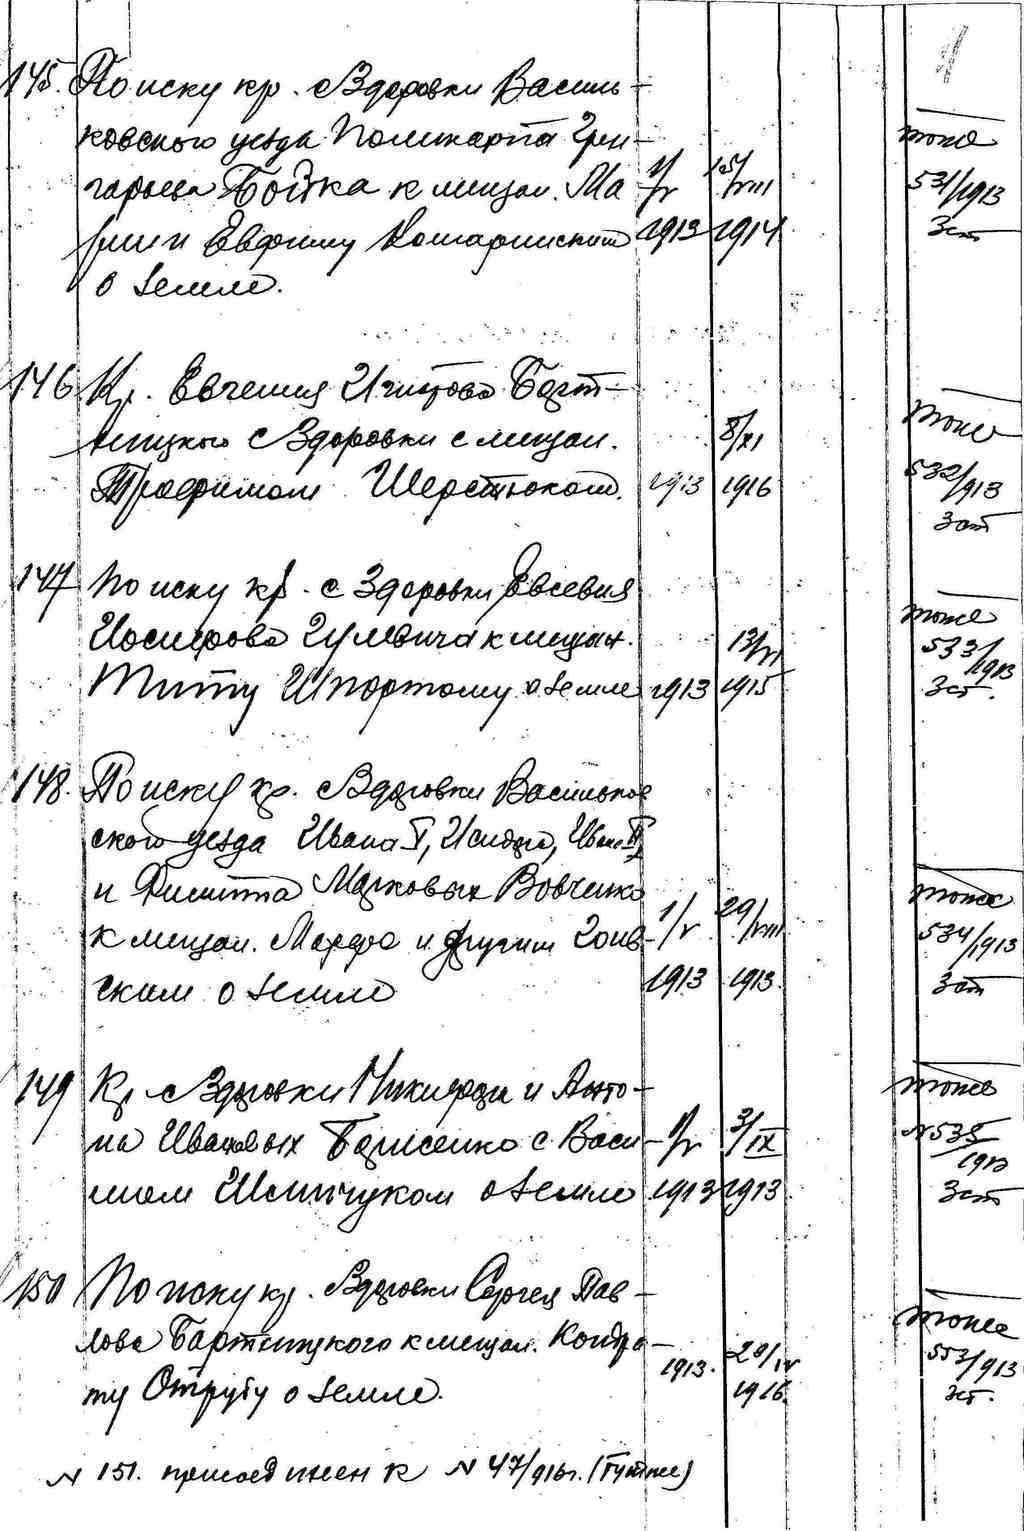 145. По иску кр. с Здоровки Василь-
ковского уезда Поликарпа Гри-
горьева Бойка к мещан. Ма-
рии и Евфиму Комаринским
о земле.
1/V 1913
15/VIII 1914
тоже
531/1913
3 ст
146 Кр. Евгения Игнатова Барт-
ницкого с Здоровки с мещан.
Трофимом Шерстюком.
1913
8/XI 1916
тоже
532/1913
3 ст
147 По иску кр. с Здоровки Евсевия
Иосифова Гулевича к мещан.
Титу Шпортому о земле
1913
13/VI 1915
тоже
533/1913
3 ст.
148. По иску кр. с Здоровки Васильков
ского уезда Ивана I, Исидора, Ивана II,
и Димитра Марковых Вовченко
к мещан. Марфе и другим
ским о земле
1/V 1913
29/VIII 1913.
тоже
534/1913
3 ст
149 Кр. с Здоровки Никифора и Анто-
на Ивановых Борисенко с Васи-
лием о земле
1/V 1913
3/IX 1913
тоже
N 535/1913
3 ст
150 По иску кр. с Здоровки Сергея Пав-
лова Бартницкого к мещан. Кондра-
ту Отруту о земле.
1913.
20/IV 1916.
тоже
553/913
3 ст.
N 151. присоединен к N 47/916 г.